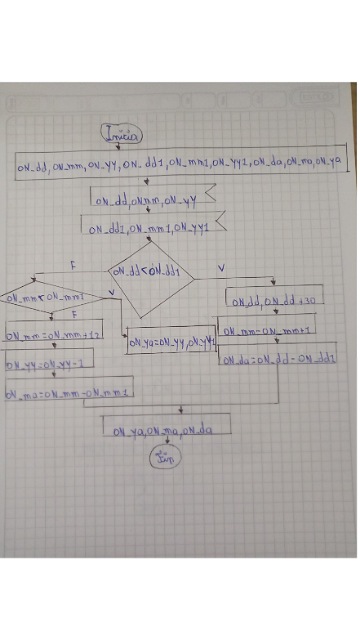 Inicia
ON_dd, ON_mm, ON_yy, ON_dd1, ON_mm1, ON_yy1, ON_da, ON_ma, ON_ya
ON_dd, ONmm, ON_yy
ON_dd1, ON_mm1, ON_yy1
F
ON_dd<ON_dd1
V
ON_mm<ON_mm1
V
ON_dd, ON_dd+30
F
ON_mm=ON_mm+12
ON_ya=ON_yy, ON_yy1
ON_mm-ON_mm+1
ON_yy=ON_yy-1
ON_da=ON_dd-ON_dd1
ON_ma=ON_mm-ON_mm1
ON_ya, ON_ma, ON_da